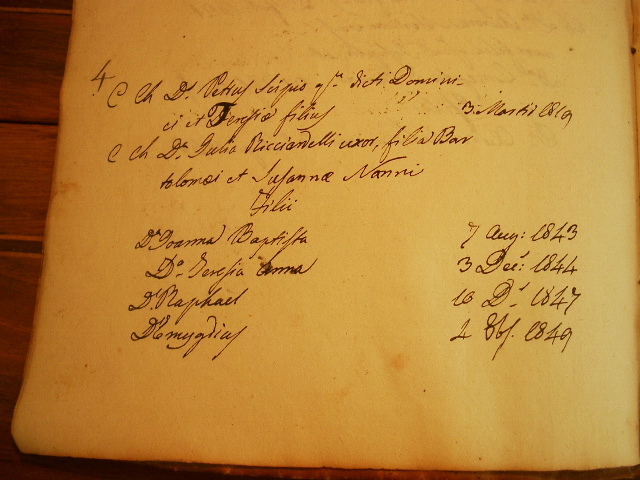 4
C Ch D.s Petrus Scipio q.m dicti Domini
ci et Teresiæ filius 3 Martii 1819
C Ch D.a Julia Ricciardelli uxor, filia Bar
tolomæi et Susannæ Nanni
Filii
D.a Joanna Baptista 7 Aug: 1843
D.a Teresia Anna 3 Dec.s 1844
D.s Raphael 10 D.s 1847
D.s Emygdius 2 8bs. 1849